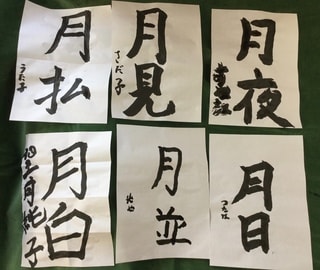 月払
うた子
月見
さだ子
月夜
月白
望月純子
月並
月日